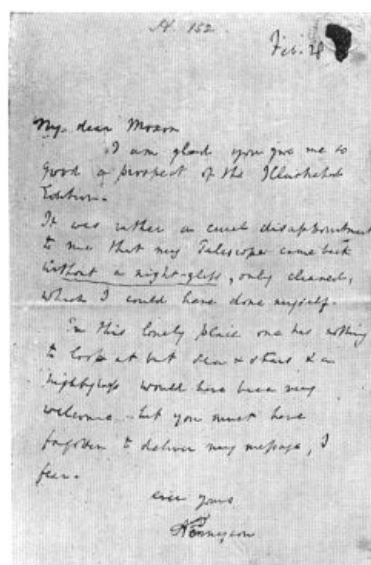 N. 152
Feb. 28
My dear Moxon
I am glad you give me so
good a prospect of the Illustrated
Edition.
It was rather a cruel disappointment
to me that my Telescope came back
without a night-glass, only cleaned,
which I could have done myself.
In this lonely place one has nothing
to look at but sea & stars & a
nightglass would have been very
welcome but you must have
forgotten to deliver my message, I
fear.
ever yours
ATennyson